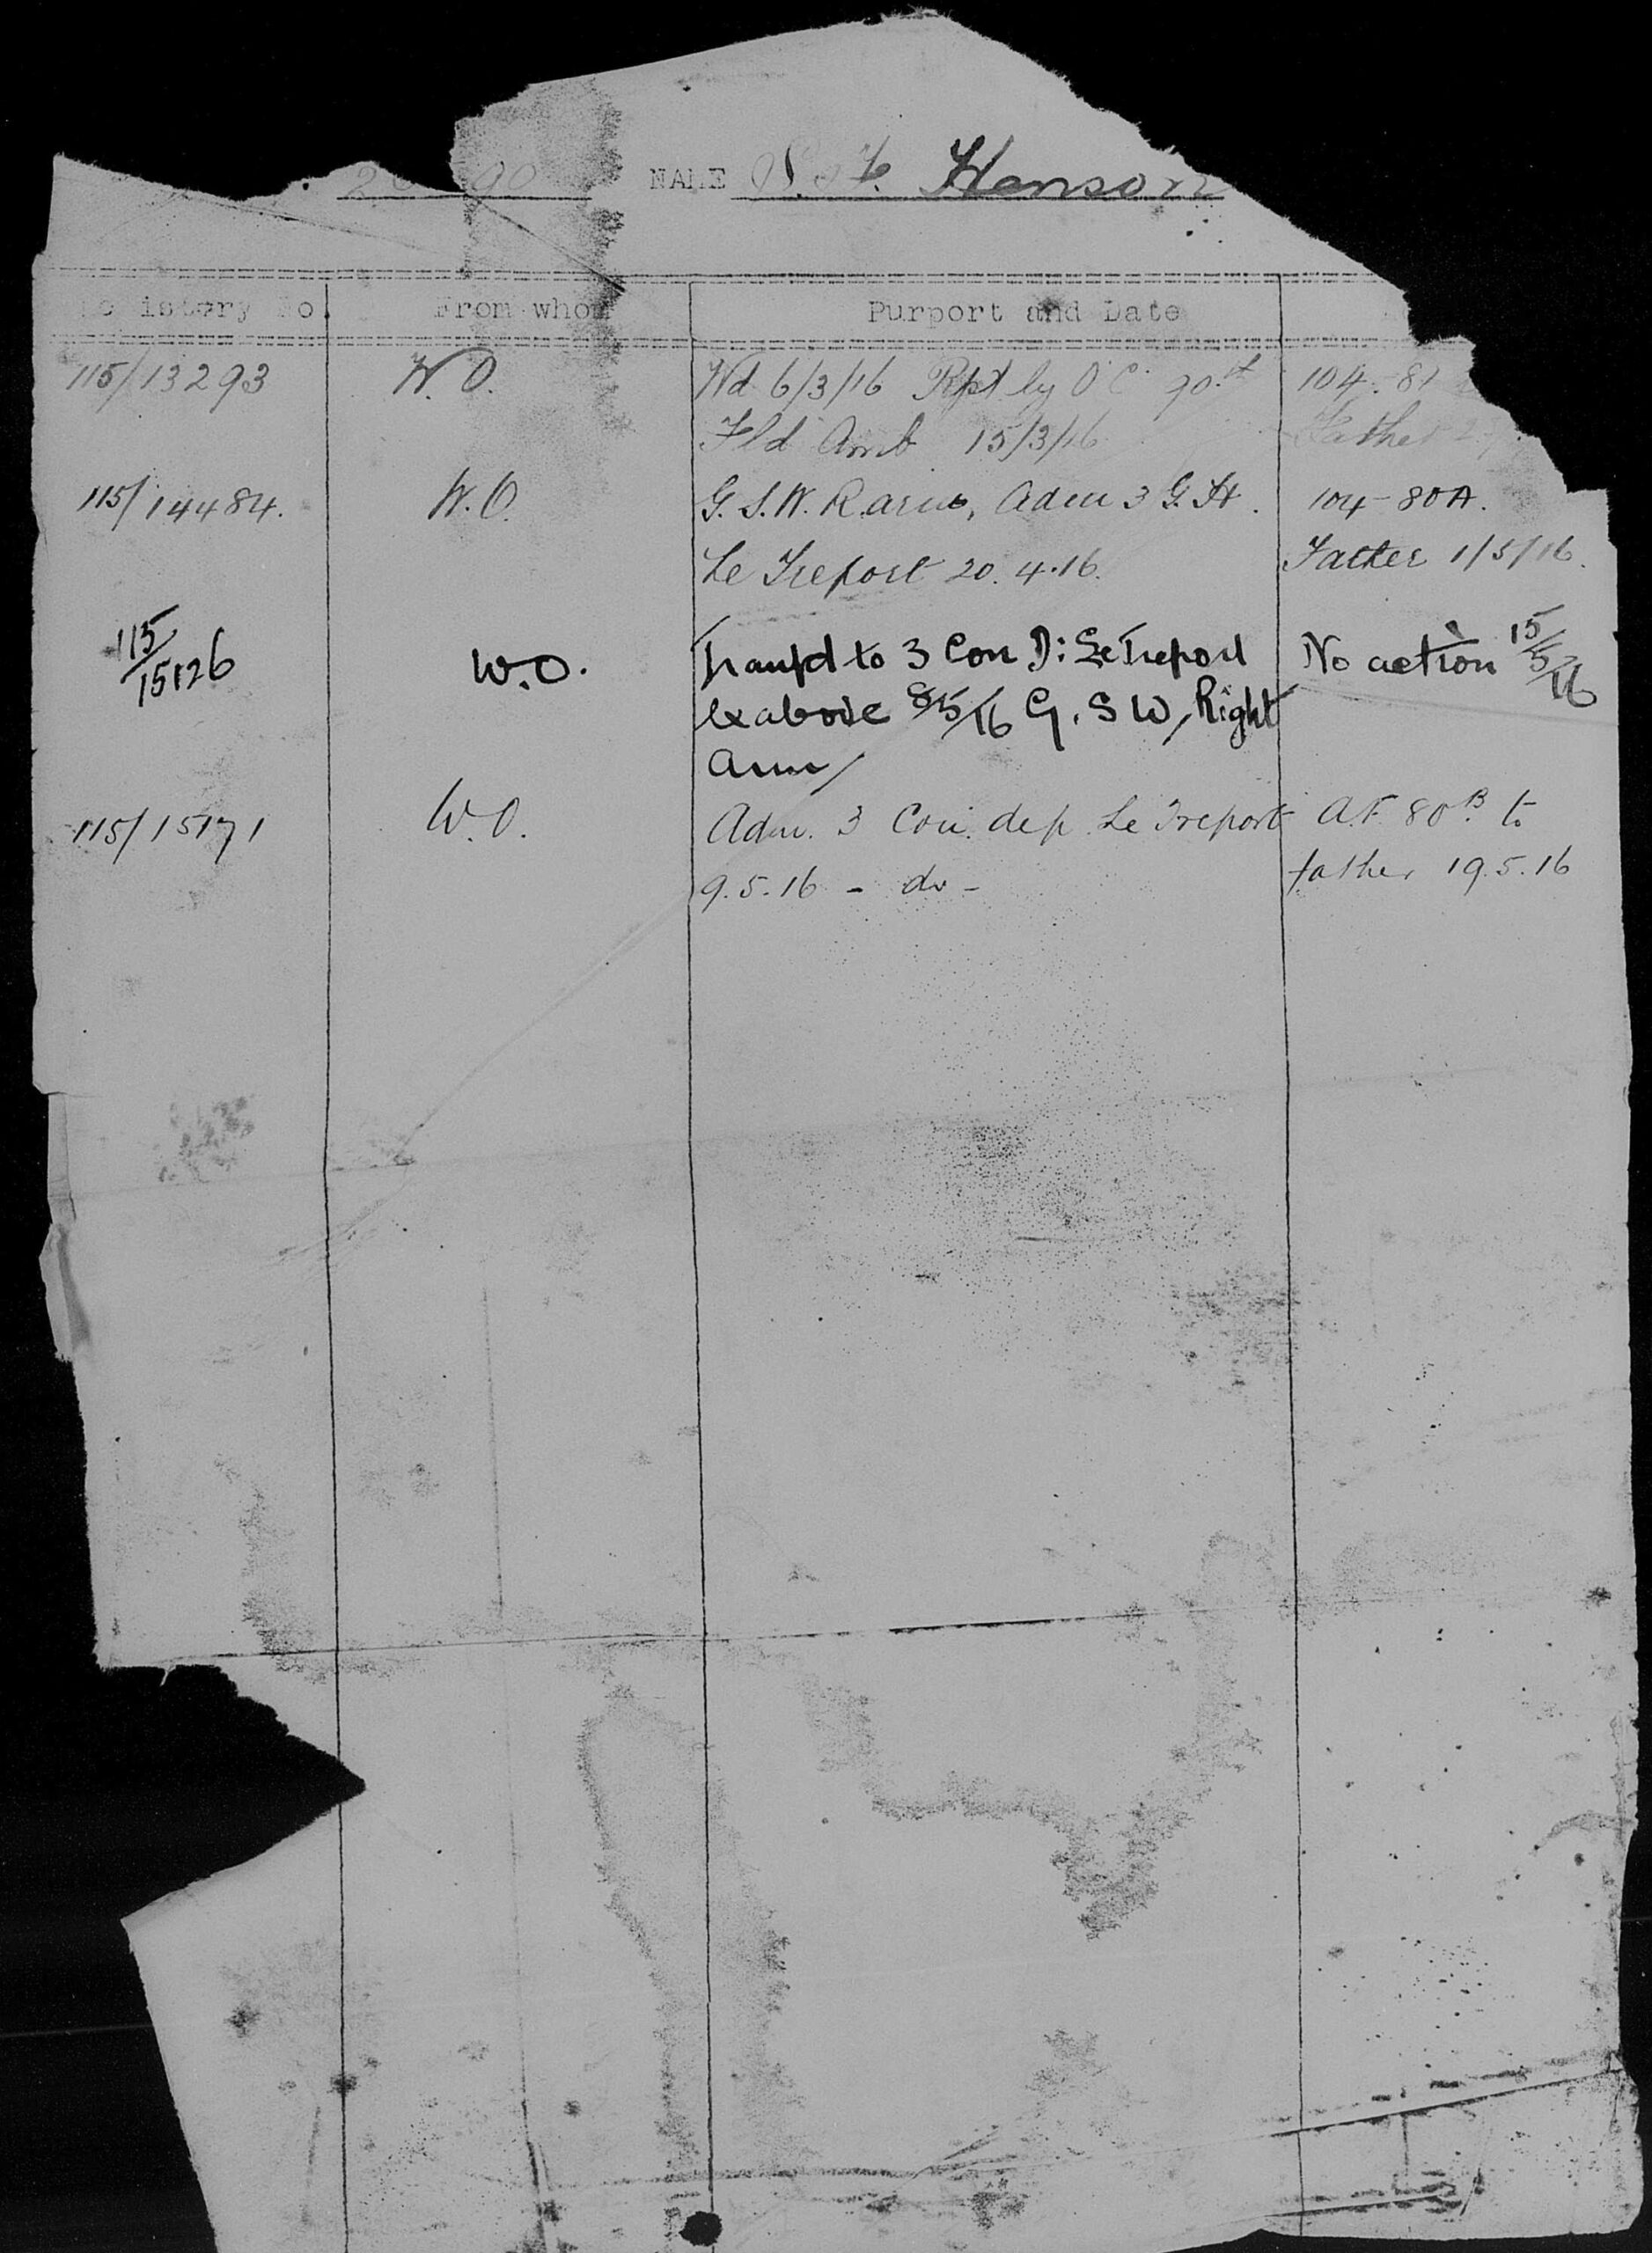 NAME Hanson
Registery No. From whom Purport and Date
115/13293 W.O. Wd 6/3/16 Rpt by O C 104-81
Fld Amb 15/3/16 Father
115/14484. W.O. G.S.W. R. arm, Adm 3 G.H. 104-80A.
Le Treport 20.4.16. Father 1/5/16.
115/15126 W.O. Transfd to 3 Con D: Le Treport No action 15/5/16
ex above 8/5/16 G.S W, Right
Arm/
115/15171 W.O. Adm. 3 Con. dep. Le Treport A.F. 80B. to
9.5.16 - do - father 19.5.16